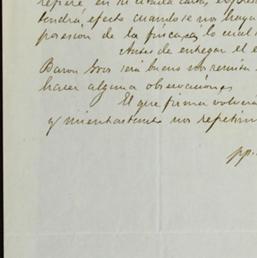 refiere, en su citada carta, expres
tendrá efecto cuando se nos haya
posesion de la finca, lo cual
Antes de entregar el e
Baron sera bueno nos remita
hacer alguna observacion
El que firma volverá
y mientras tanto nos repetim
pp.